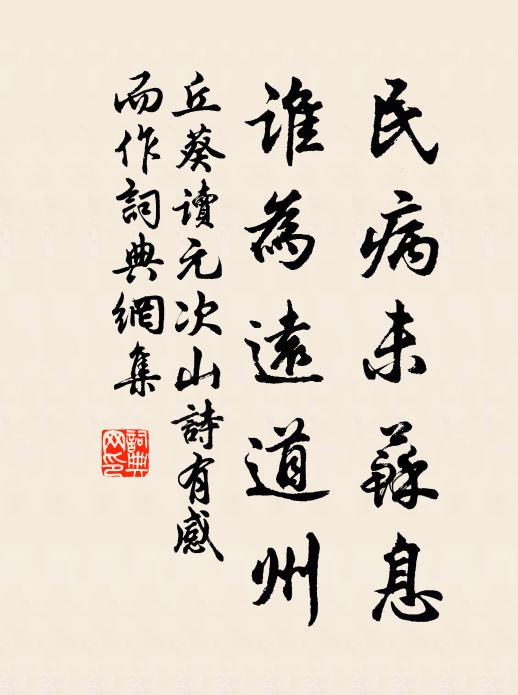 民病未蘇息
誰為遠道州
丘葵讀元次山詩有感
而作詞典網集
詞典
网印